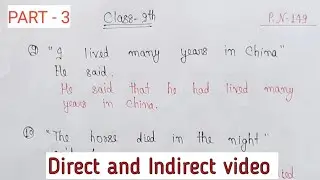 PART - 3
Class- 9th
P.N-149
"I lived many years in China"
He said.
He said that he had lived many
years in China.
"The horse died in the night"
Direct and Indirect video
ted